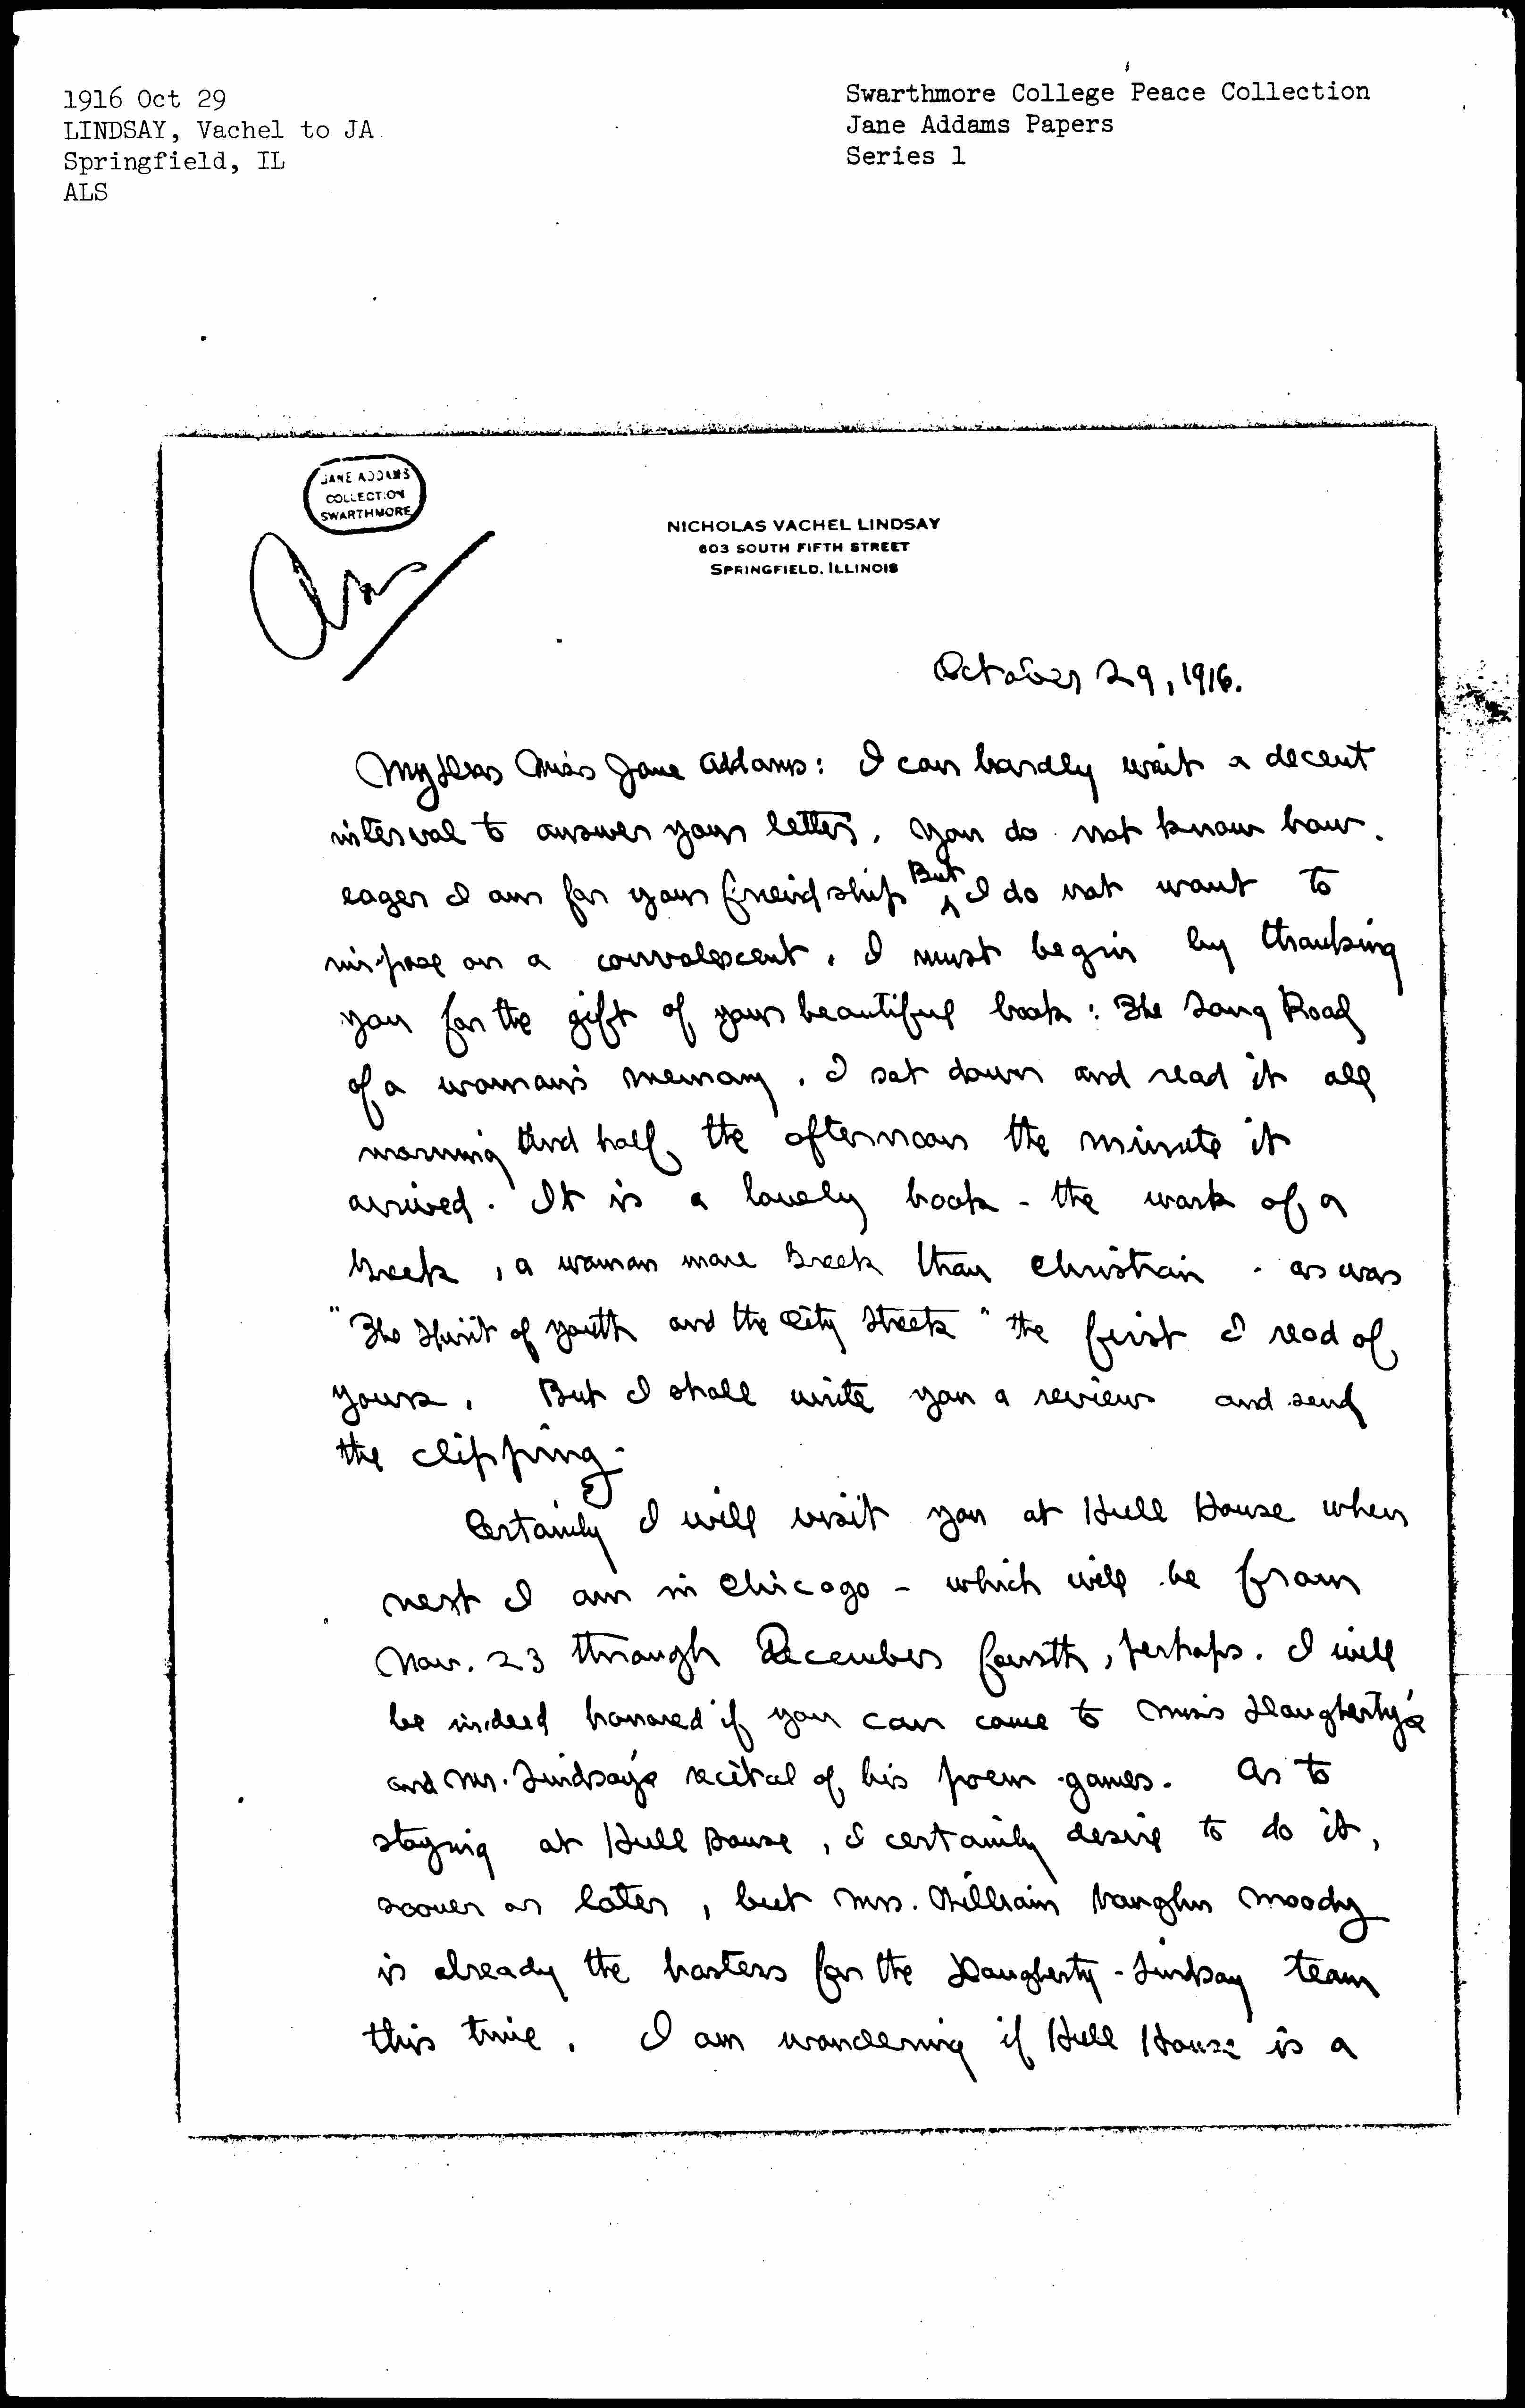 1916 Oct 29
LINDSAY, Vachel to JA
Springfield, IL
ALS
Swarthmore College Peace Collection
Jane Addams Papers
Series 1
JANE ADDAMS
COLLECTION
SWARTHMORE
NICHOLAS VACHEL LINDSAY
603 SOUTH FIFTH STREET
SPRINGFIELD, ILLINOIS
October 29, 1916.
My dear Miss Jane Addams: I can hardly wait a decent
interval to answer your letter. You do not know how
eager I am for your freindship But I do not want to
impose on a convalescent. I must begin by thanking
you for the gift of your beautiful book: The Long Road
of a woman's memory. I sat down and read it all
morning and half the afternoon the minute it
arrived. It is a lovely book - the work of a
Greek, a woman more Greek than Christian - as was
"The Spirit of youth and the City Streets" the first I read of
yours. But I shall write you a review and send
the clipping.
Certainly I will visit you at Hull House when
next I am in Chicago - which will be from
Nov. 23 through December fourth, perhaps. I will
be indeed honored if you can come to Miss Daugherty's
and Mr. Lindsay's recital of his poem-games. As to
staying at Hull House, I certainly desire to do it,
sooner or later, but Mrs. William Vaughn Moody
is already the hostess for the Daugherty-Lindsay team
this time. I am wondering if Hull House is a